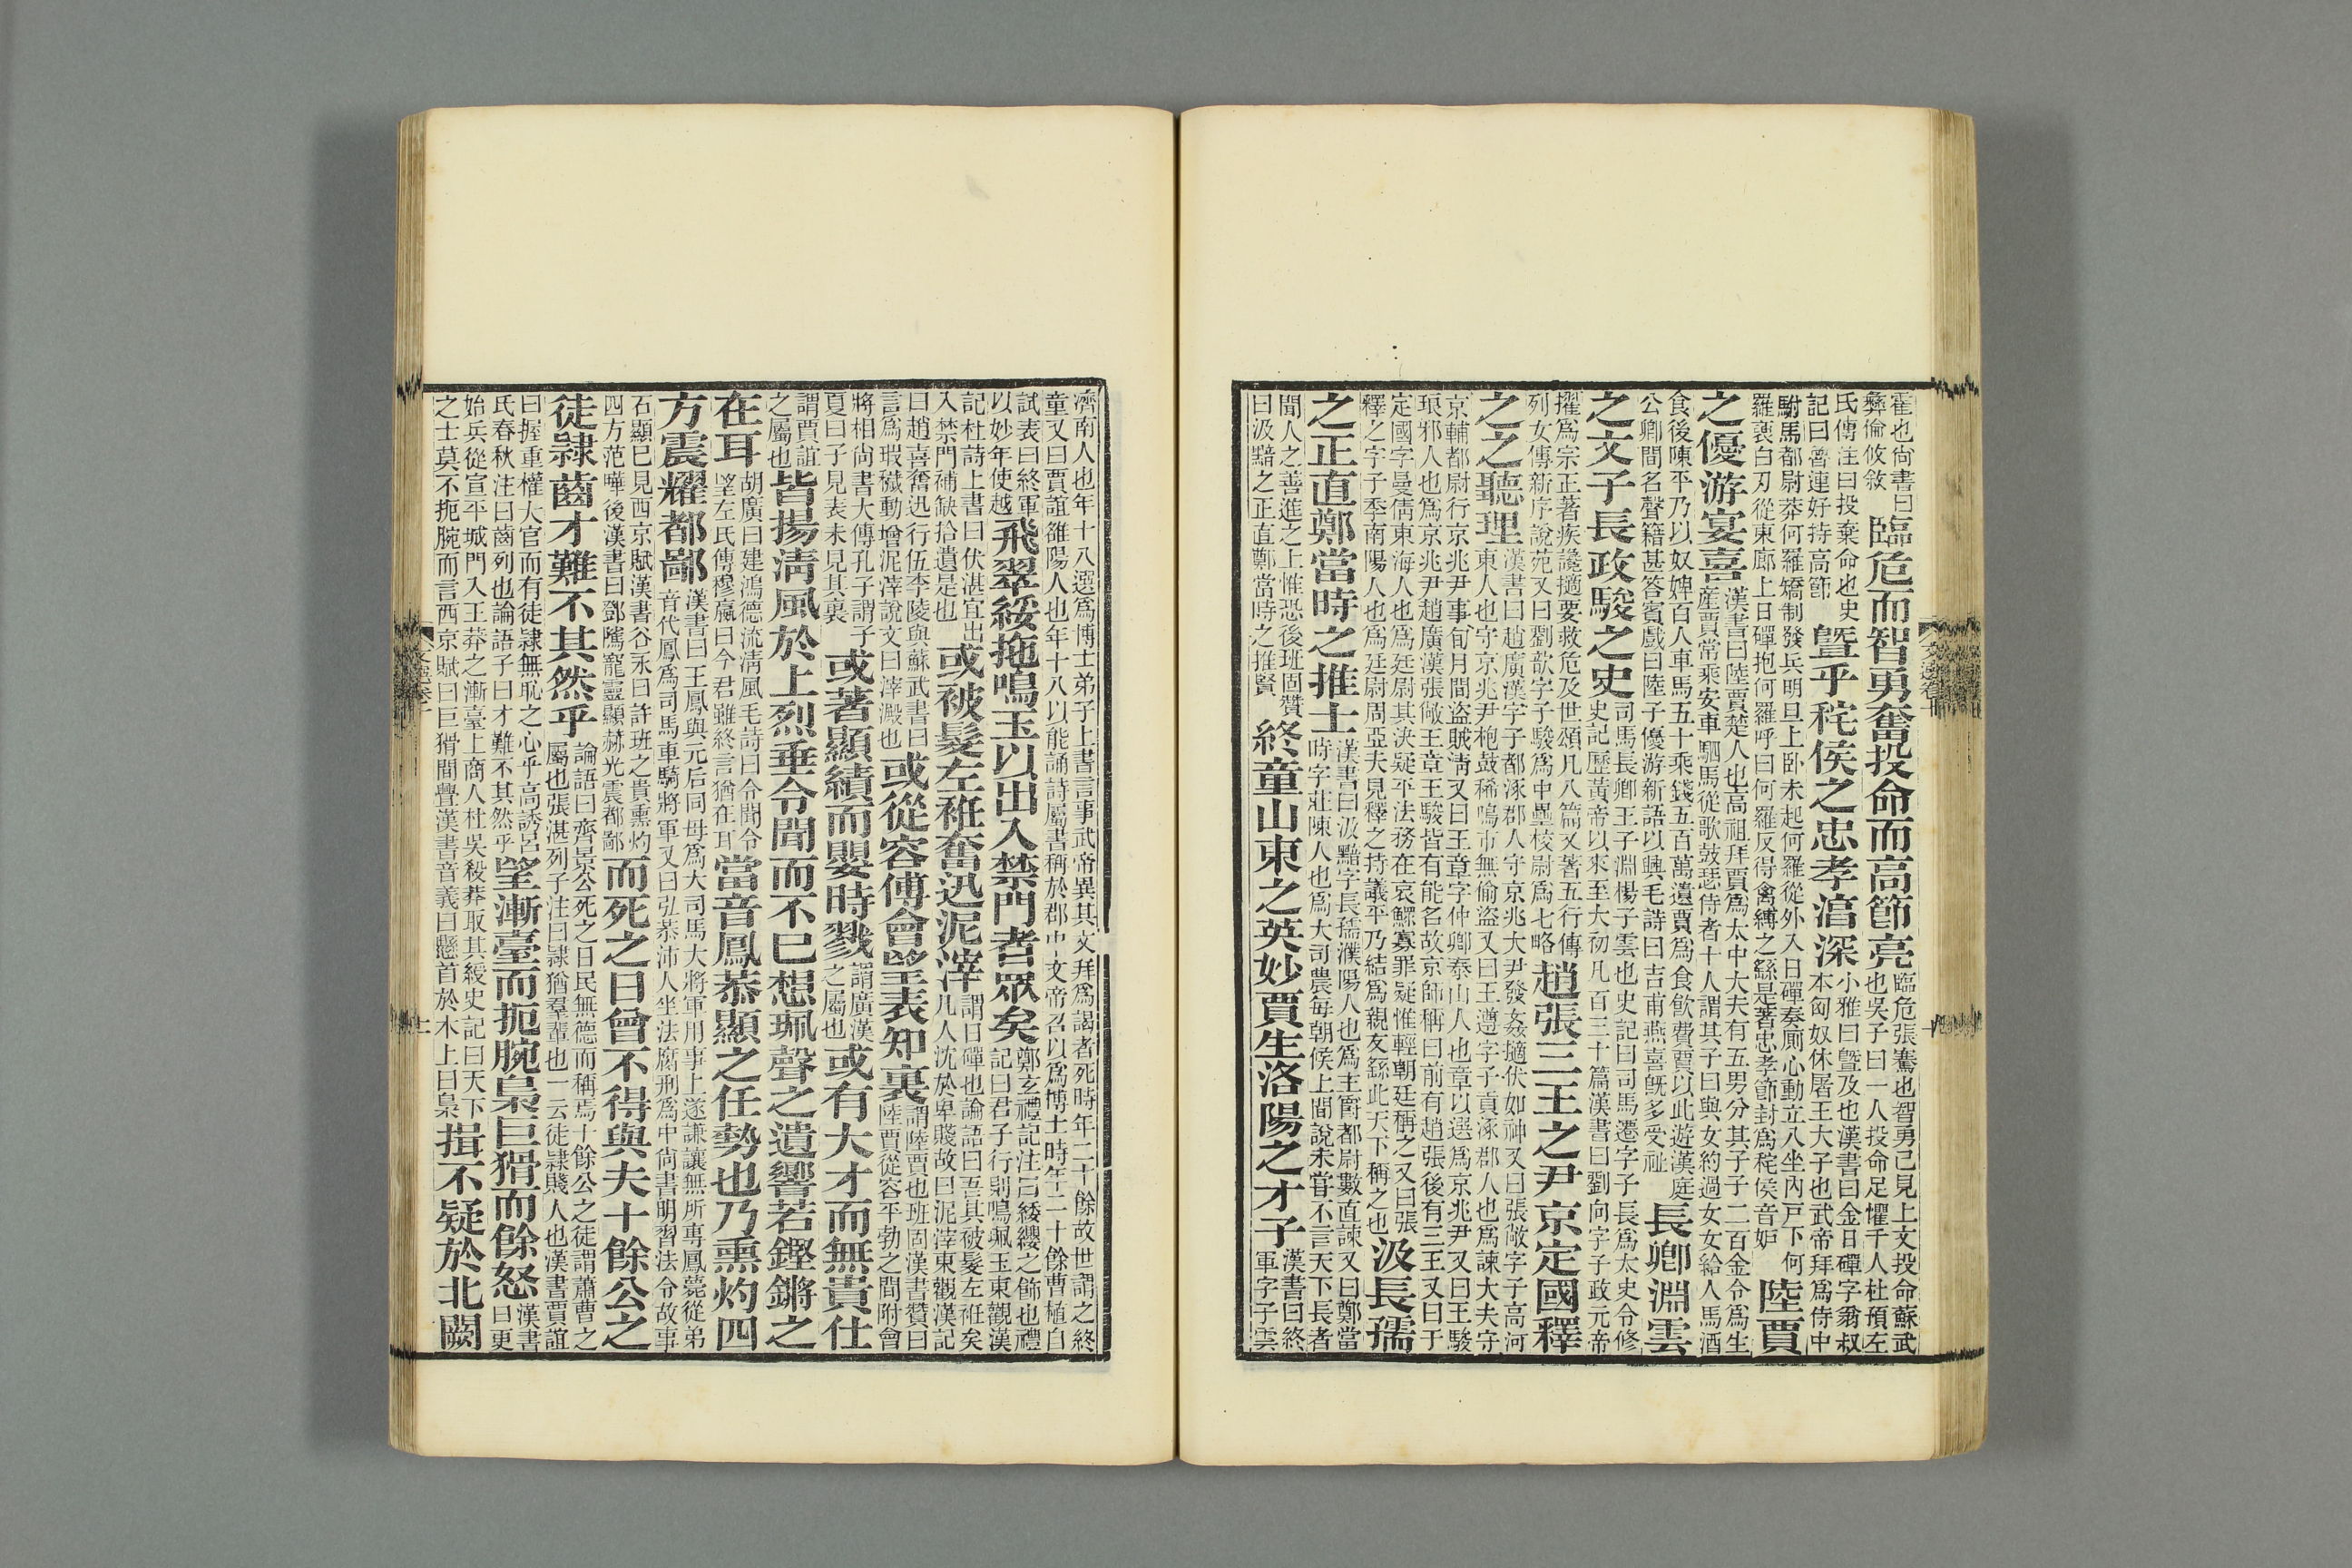 霍也尚書曰彝倫攸敘臨危而智勇奮投命而高節亮臨危張騫也智勇已見上文投命蘇武也吳子曰一人投命足懼千人杜預左
氏傳注曰投棄命也史記曰魯連好持高節曁乎秺侯之忠孝淳深小雅曰曁及也漢書曰金日磾字翁叔本匈奴休屠王大子也武帝拜爲侍中
駙馬都尉莽何羅矯制發兵明旦上卧未起何羅從外入日磾奏廁心動立入坐內戸下何羅襃白刃從東廂上日磾抱何羅呼曰何羅反得禽縛之繇是著忠孝節封爲秺侯音妒陸賈
之優游宴喜漢書曰陸賈楚人也高祖拜賈爲太中大夫有五男分其子子二百金令爲生產賈常乘安車駟馬從歌鼓瑟侍者十人謂其子曰與女約過女女給人馬酒
食後陳平乃以奴婢百人車馬五十乘錢五百萬遺賈爲食飲費賈以此遊漢庭公卿間名聲籍甚答賓戲曰陸子優游新語以興毛詩曰吉甫燕喜旣多受祉長卿淵雲
之文子長政駿之史司馬長卿王子淵楊子雲也史記曰司馬遷字子長爲太史令修史記歷黃帝以來至大初凡百三十篇漢書曰劉向字子政元帝
擢爲宗正著疾讒擿要救危及世頌凡八篇又著五行傳列女傳新序說苑又曰劉歆字子駿爲中壘校尉爲七略趙張三王之尹京定國釋
之之聽理漢書曰趙廣漢字子都涿郡人守京兆大尹發姦擿伏如神又曰張敞字子高河東人也守京兆尹枹鼓稀鳴市無偷盜又曰王遵字子貢涿郡人也爲諫大夫守
京輔都尉行京兆尹事旬月間盜賊淸又曰王章字仲卿泰山人也章以選爲京兆尹又曰王駿琅邪人也爲京兆尹趙廣漢張敞王章王駿皆有能名故京師稱曰前有趙張後有三王又曰于
定國字曼倩東海人也爲廷尉其決疑平法務在哀鰥寡罪疑惟輕朝廷稱之又曰張釋之字子季南陽人也爲廷尉周亞夫見釋之持議平乃結爲親友繇此天下稱之也汲長孺
之正直鄭當時之推士漢書曰汲黯字長孺濮陽人也爲主爵都尉數直諫又曰鄭當時字莊陳人也爲大司農每朝侯上間說未嘗不言天下長者
聞人之善進之上惟恐後班固贊曰汲黯之正直鄭當時之推賢終童山東之英妙賈生洛陽之才子漢書曰終軍字子雲
濟南人也年十八選爲博士弟子上書言事武帝異其文拜爲謁者死時年二十餘故世謂之終童又曰賈誼雒陽人也年十八以能誦詩屬書稱於郡中文帝召以爲博士時年二十餘曹植自
試表曰終軍以妙年使越飛翠綏拖鳴玉以出入禁門者眾矣鄭玄禮記注曰緌纓之飾也禮記曰君子行則鳴珮玉東觀漢
記杜詩上書曰伏湛宜出入禁門補缺拾遺是也或被髮左衽奮迅泥滓謂日磾也論語曰吾其被髮左衽矣凡人沈於卑賤故曰泥滓東觀漢記
曰趙喜奮迅行伍李陵與蘇武書曰言爲瑕穢動增泥滓說文曰滓澱也或從容傅會望表知裏謂陸賈也班固漢書贊曰陸賈從容平勃之間附會
將相尚書大傳孔子謂子夏曰子見表未見其裏或著顯績而嬰時戮謂廣漢之屬也或有大才而無貴仕
謂賈誼之屬也皆揚淸風於上烈垂令聞而不已想珮聲之遺響若鏗鏘之
在耳胡廣曰建鴻德流淸風毛詩曰令聞令望左氏傳穆嬴曰今君雖終言猶在耳當音鳳恭顯之任勢也乃熏灼四
方震耀都鄙漢書曰王鳳與元后同母爲大司馬大將軍用事上遂謙讓無所專鳳薨從弟音代鳳爲司馬車騎將軍又曰弘恭沛人坐法腐刑爲中尚書明習法令故事
石顯已見西京賦漢書谷永曰許班之貴熏灼四方范曄後漢書曰鄧騭寵靈顯赫光震都鄙而死之日曾不得與夫十餘公之
徒隸齒才難不其然乎論語曰齊景公死之日民無德而稱焉十餘公之徒謂蕭曹之屬也張湛列子注曰隸猶羣輩也一云徒隸賤人也漢書賈誼
曰握重權大官而有徒隸無恥之心乎高誘呂氏春秋注曰齒列也論語子曰才難不其然乎望漸臺而扼腕梟巨猾而餘怒漢書曰更
始兵從宣平城門入王莽之漸臺上商人杜吳殺莽取其綬史記曰天下之士莫不扼腕而言西京賦曰巨猾間釁漢書音義曰懸首於木上曰梟揖不疑於北闕